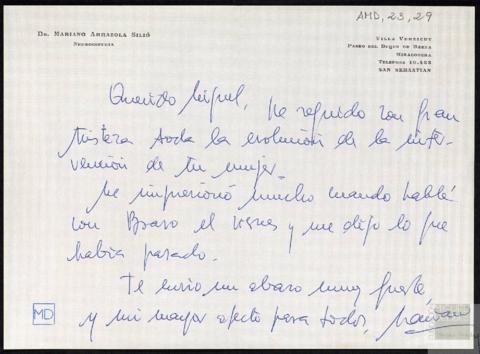 AMD, 23, 29
Dr. Mariano Arrazola Silió
Neurocirugía
Villa Versicut
Paseo del Duque de Baena
Miraconcha
Teléfono 10.488
San Sebastian
Querido Miguel, he seguido con gran
tristeza toda la evolución de la inter-
vención de tu mujer.
Me impresionó mucho cuando hablé
con Bravo el viernes y me dijo lo que
había pasado.
Te envio un abrazo muy fuerte,
y mi mayor afecto para todos, Mariano
MD